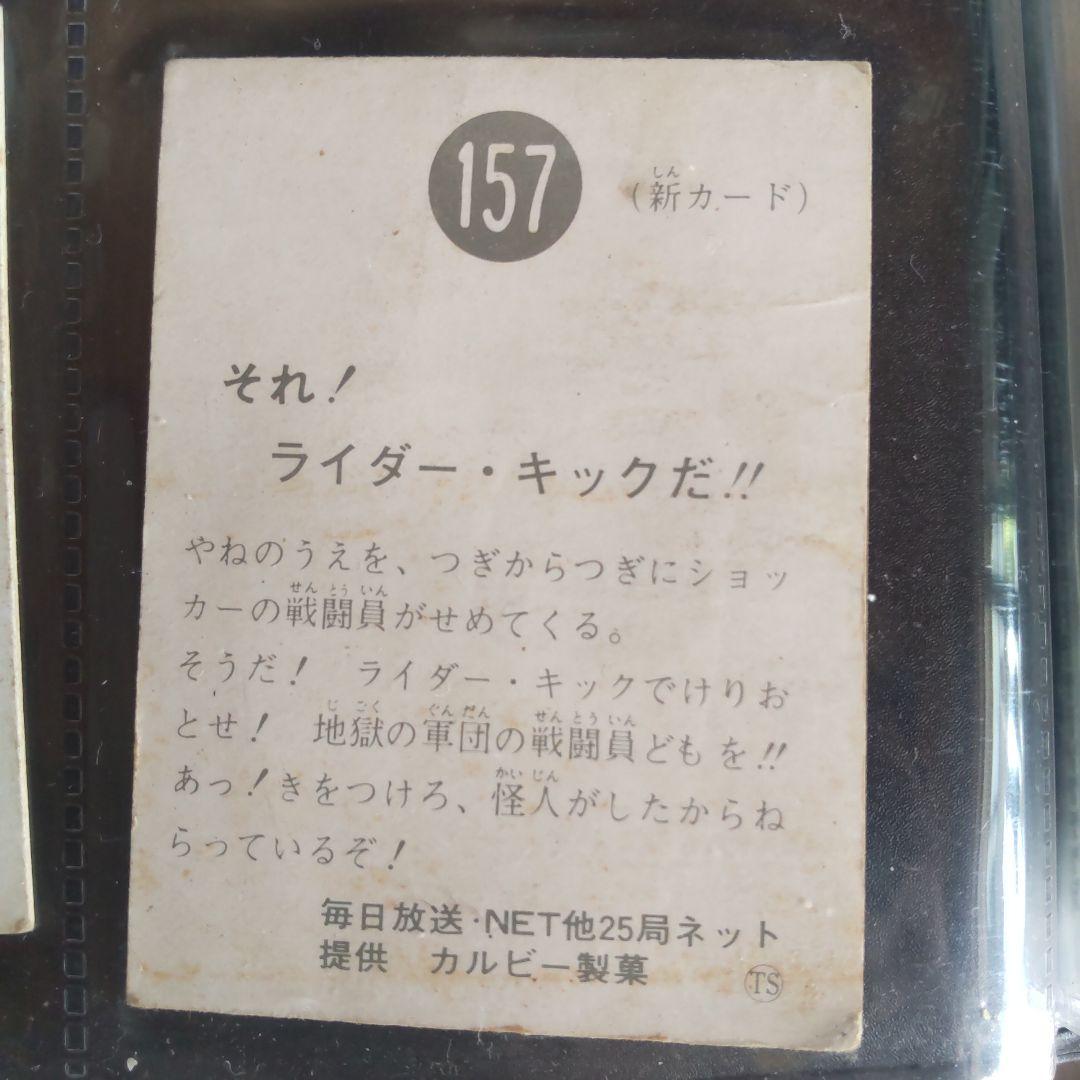 157
(新カード)
しん
それ！
ライダー・キックだ!!
やねのうえを、つぎからつぎにショッ
せんとういん
カーの戦闘員がせめてくる。
そうだ！　ライダー・キックでけりお
じごく　ぐんだん　せんとういん
とせ！　地獄の軍団の戦闘員どもを!!
かいじん
あっ！きをつけろ、怪人がしたからね
らっているぞ！
毎日放送・NET他25局ネット
提供　カルビー製菓
TS